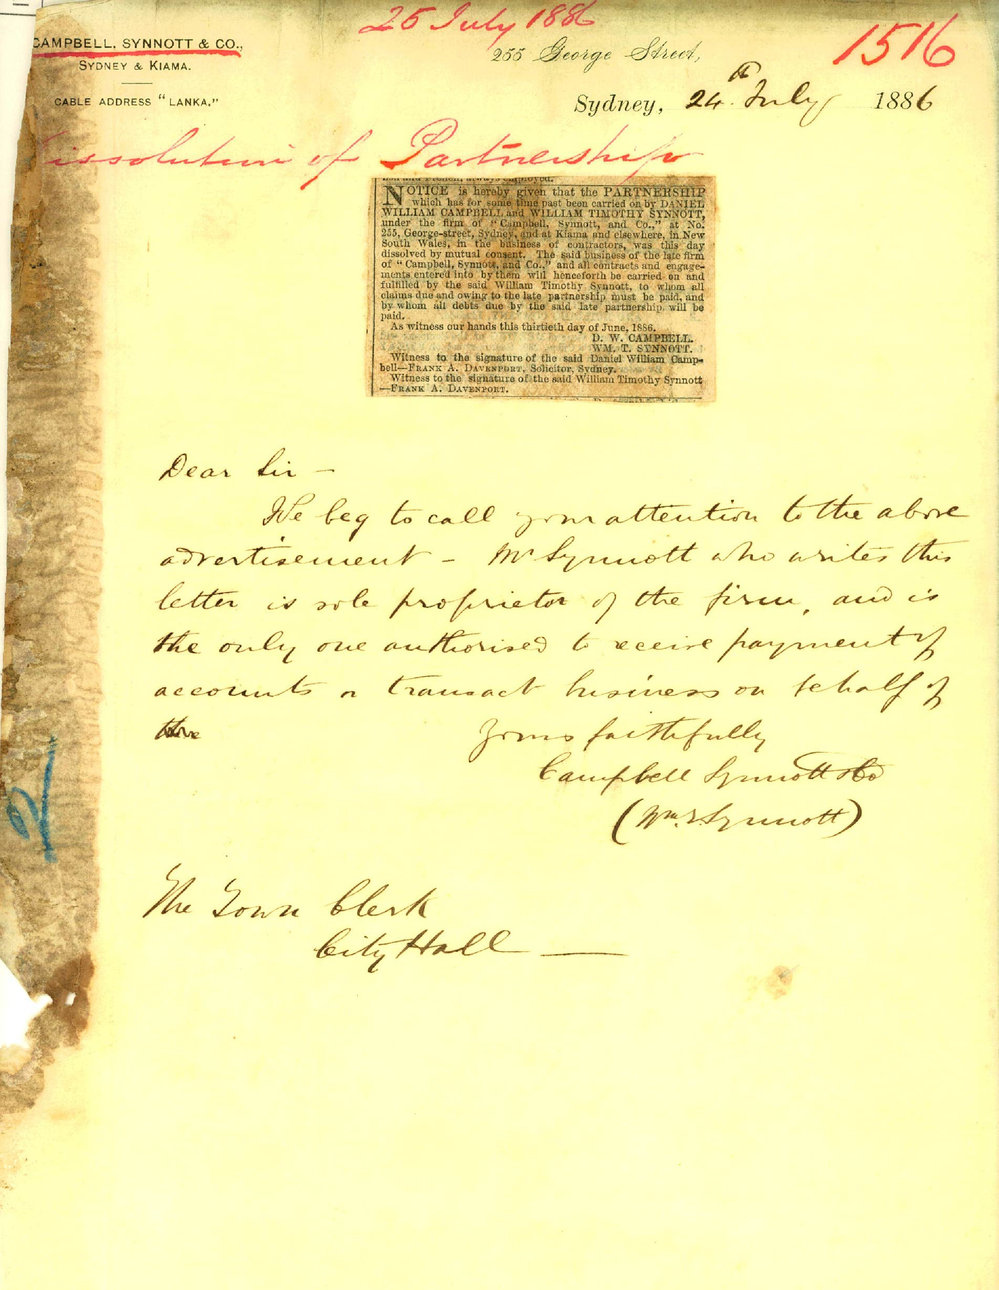 25 July 1886
1516
CAMPBELL, SYNNOTT & CO.,
SYDNEY & KIAMA.
CABLE ADDRESS "LANKA."
255 George Street,
Sydney, 24th July 1886
issolution of Partnership
NOTICE is hereby given that the PARTNERSHIP
which has for some time past been carried on by DANIEL
WILLIAM CAMPBELL and WILLIAM TIMOTHY SYNNOTT,
under the firm of "Campbell, Synnott, and Co.," at No.
255, George-street, Sydney, and at Kiama and elsewhere, in New
South Wales, in the business of contractors, was this day
dissolved by mutual consent. The said business of the late firm
of "Campbell, Synnott, and Co.," and all contracts and engage-
ments entered into by them will henceforth be carried on and
fulfilled by the said William Timothy Synnott, to whom all
claims due and owing to the late partnership must be paid, and
by whom all debts due by the said late partnership will be
paid.
As witness our hands this thirtieth day of June, 1886.
D. W. CAMPBELL.
WM. T. SYNNOTT.
Witness to the signature of the said Daniel William Camp-
bell—FRANK A. DAVENPORT, Solicitor, Sydney.
Witness to the signature of the said William Timothy Synnott
—FRANK A. DAVENPORT.
Dear Sir —
We beg to call your attention to the above
advertisement – Mr Synnott who writes this
letter is sole proprietor of the firm, and is
the only one authorised to receive payment of
accounts or transact business on behalf of
the
Yours faithfully
Campbell Synnott & Co
(Wm. T. Synnott)
The Town Clerk
City Hall —
2